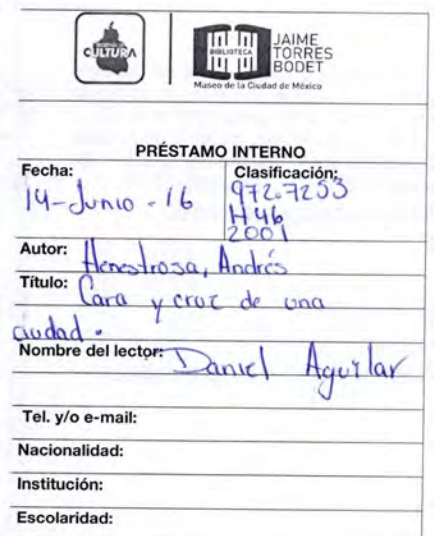 CULTURA
BIBLIOTECA
JAIME
TORRES
BODET
Museo de la Ciudad de México
PRÉSTAMO INTERNO
Fecha:
14-Junio-16
Clasificación:
972.7253
H46
2001
Autor: Henestrosa, Andrés
Título: Cara y cruz de una
ciudad.
Nombre del lector: Daniel Aguilar
Tel. y/o e-mail:
Nacionalidad:
Institución:
Escolaridad: